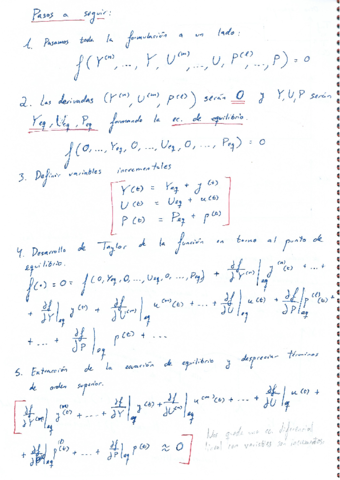 Pasos a seguir:
1. Pasamos toda la formulación a un lado:
f(Y⁽ⁿ⁾, ..., Y, U⁽ᵐ⁾, ..., U, P⁽ˡ⁾, ..., P) = 0
2. Las derivadas (Y⁽ⁿ⁾, U⁽ᵐ⁾, P⁽ˡ⁾) serán 0 y Y, U, P serán
Yeq, Ueq, Peq formando la ec. de equilibrio.
f(0, ..., Yeq, 0, ..., Ueq, 0, ..., Peq) = 0
3. Definir variables incrementales
Y(t) = Yeq + y(t)
U(t) = Ueq + u(t)
P(t) = Peq + p(t)
4. Desarrollo de Taylor de la función en torno al punto de
equilibrio.
f(·) = 0 = f(0, Yeq, 0, ..., Ueq, 0, ..., Peq) + ∂f/∂Y⁽ⁿ⁾|eq y⁽ⁿ⁾(t) + ... +
+ ∂f/∂Y|eq y(t) + ∂f/∂U⁽ᵐ⁾|eq u⁽ᵐ⁾(t) + ... + ∂f/∂U|eq u(t) + ∂f/∂P|eq p⁽ˡ⁾(t) +
+ ... + ∂f/∂P|eq p(t) + ...
5. Extracción de la ecuación de equilibrio y despreciar términos
de orden superior.
∂f/∂Y⁽ⁿ⁾|eq y⁽ⁿ⁾(t) + ... + ∂f/∂Y|eq y(t) + ∂f/∂U⁽ᵐ⁾|eq u⁽ᵐ⁾(t) + ... + ∂f/∂U|eq u(t) +
+ ∂f/∂P⁽ˡ⁾|eq p⁽ˡ⁾(t) + ... + ∂f/∂P|eq p(t) ≈ 0
Me queda una ec. diferencial
lineal con variables